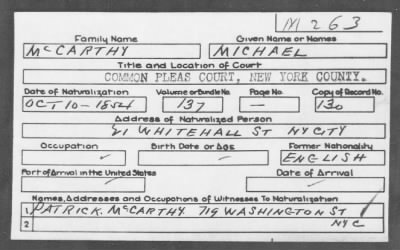 M 263
Family Name Given Name or Names
McCARTHY MICHAEL
Title and Location of Court
COMMON PLEAS COURT, NEW YORK COUNTY.
Date of Naturalization Volume or Bundle No. Page No. Copy of Record No.
OCT 10-1854 137 — 130
Address of Naturalized Person
21 WHITEHALL ST NY CITY
Occupation Birth Date or Age Former Nationality
ENGLISH
Port of Arrival in the United States Date of Arrival
Names, Addresses and Occupations of Witnesses To Naturalization
1 PATRICK McCARTHY 719 WASHINGTON ST
2 NYC